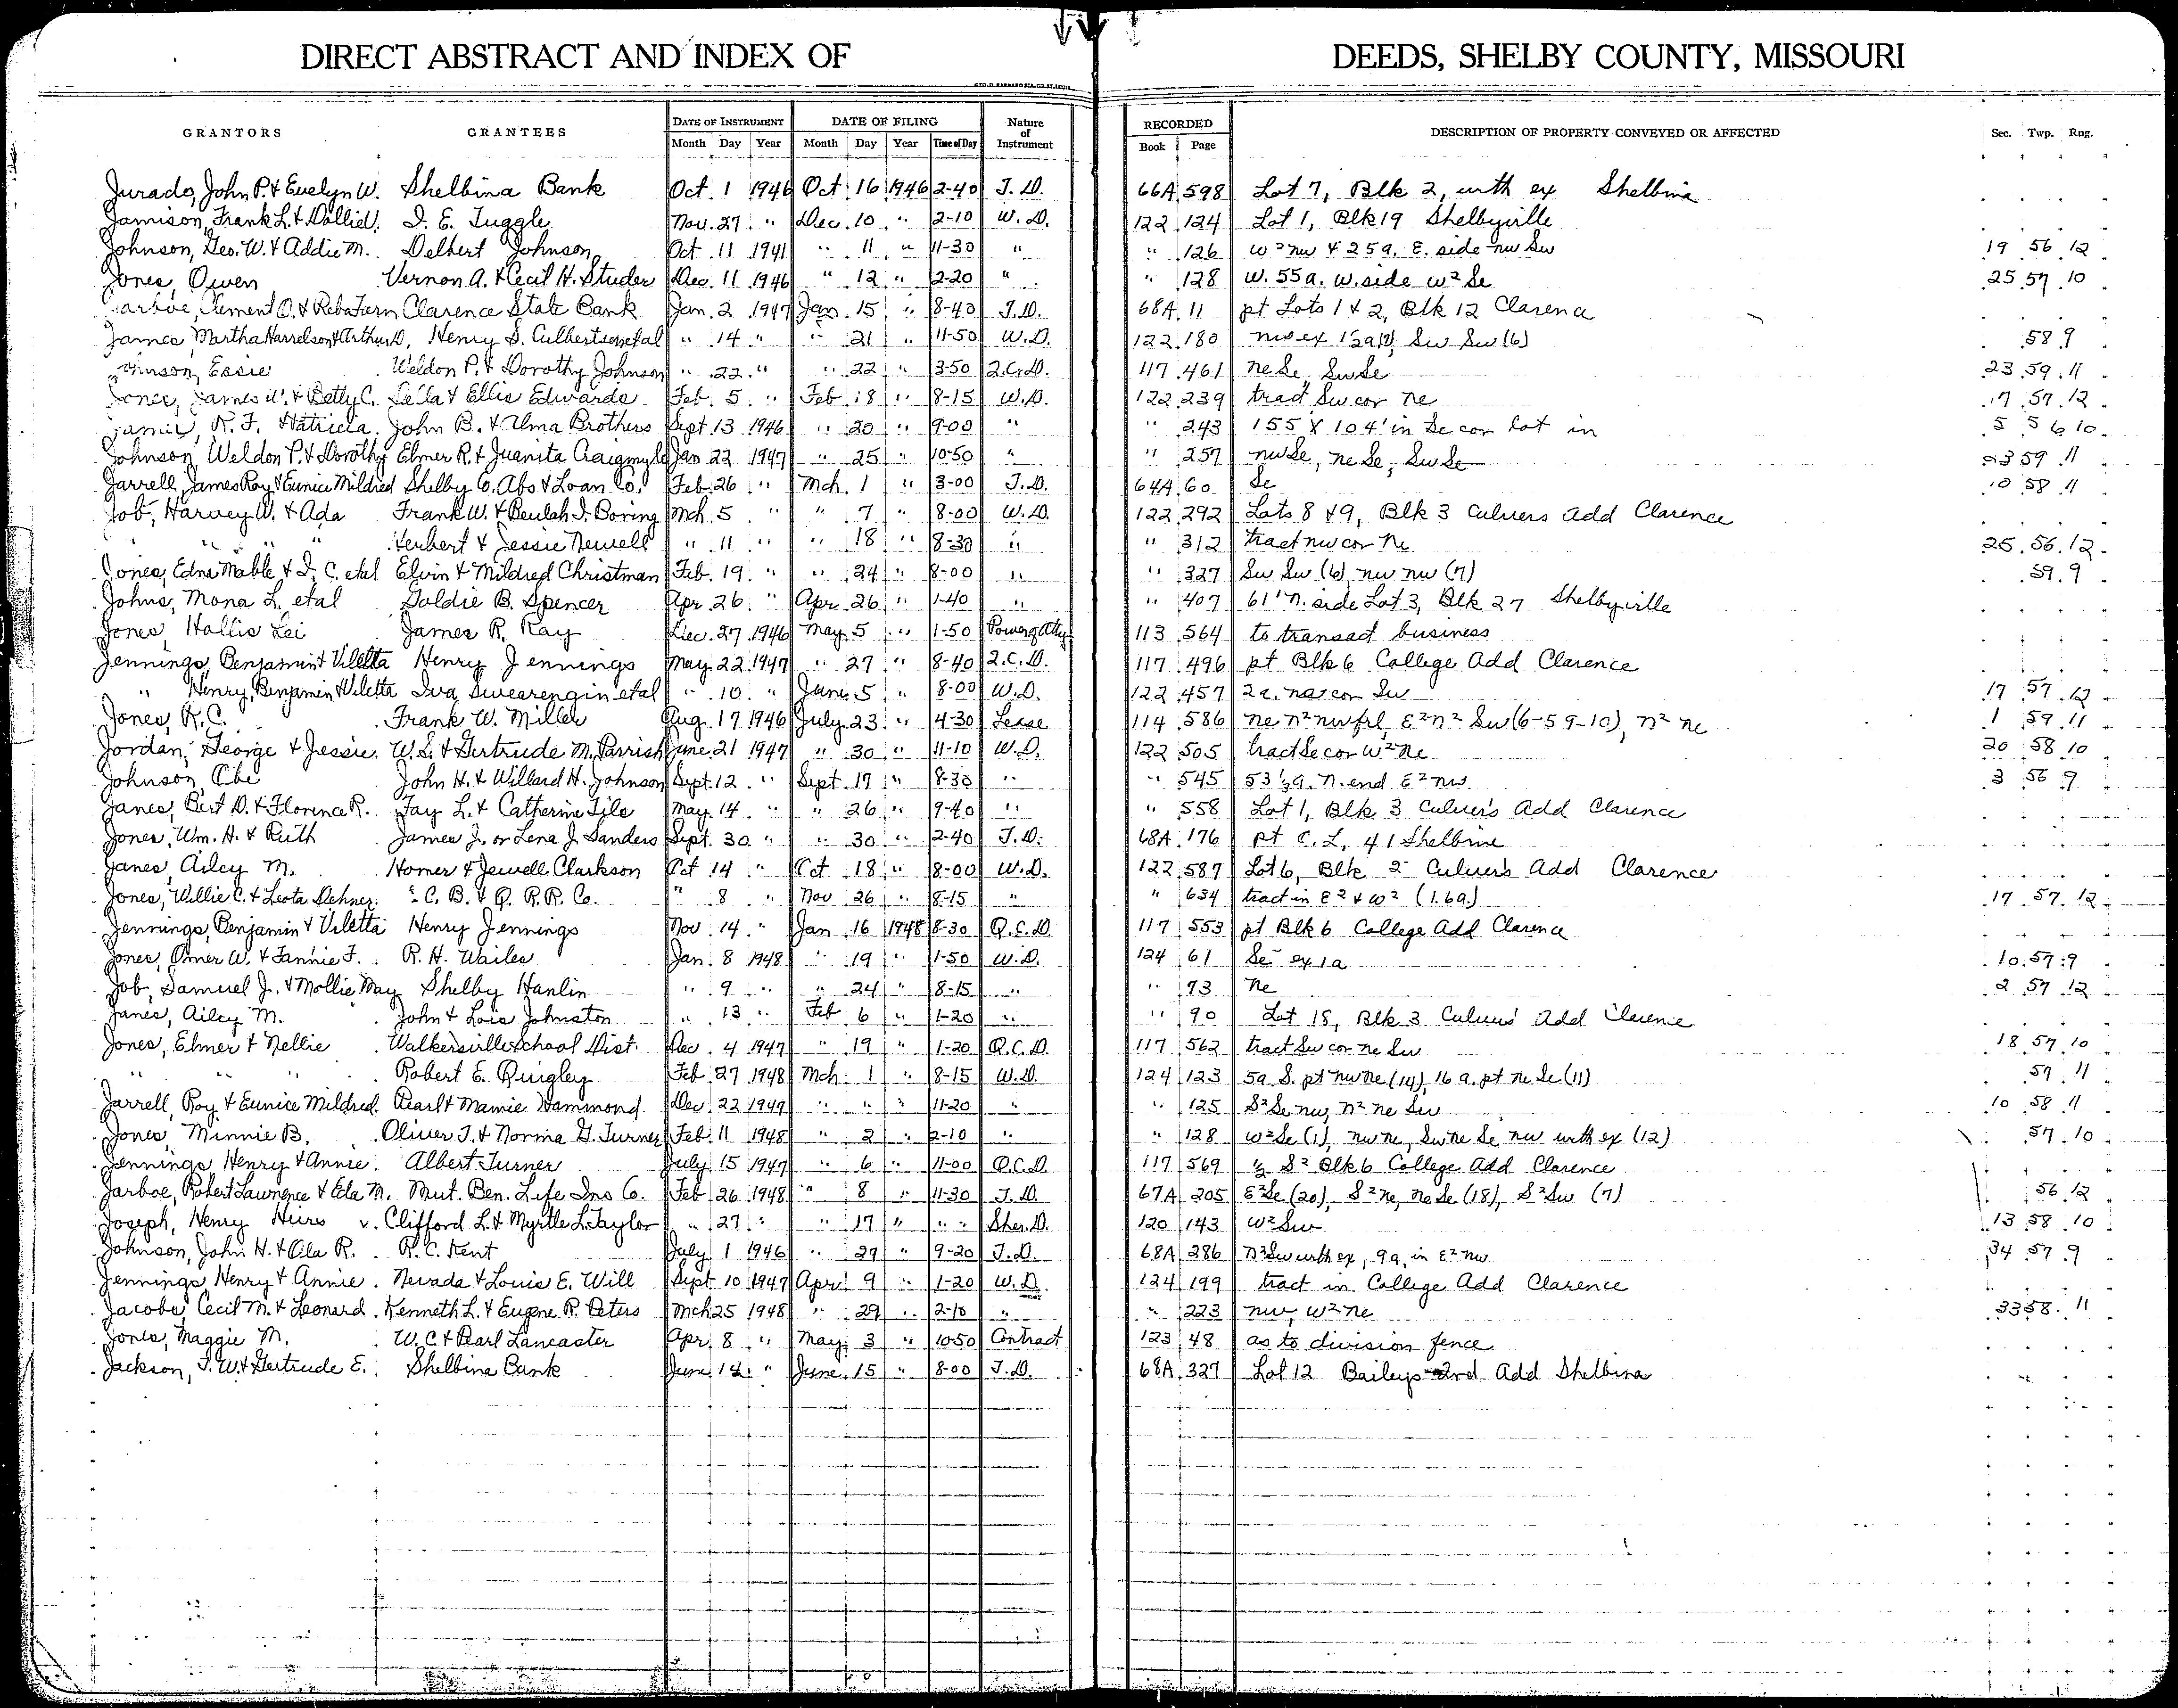 DIRECT ABSTRACT AND INDEX OF DEEDS, SHELBY COUNTY, MISSOURI
GEO. D. BARNARD STA. CO. ST. LOUIS
GRANTORS GRANTEES DATE OF INSTRUMENT DATE OF FILING Nature of Instrument RECORDED DESCRIPTION OF PROPERTY CONVEYED OR AFFECTED Sec. Twp. Rng.
Month Day Year Month Day Year Time of Day Book Page
Jurado, John P. & Evelyn W. Shelbina Bank Oct. 1 1946 Oct 16 1946 2-40 T. D. 66A 598 Lot 7, Blk 2, wth ex Shelbina
Jamison, Frank L. & Dollie J. I. E. Tuggle Nov. 27 " Dec. 10 " 2-10 W. D. 122 124 Lot 1, Blk 19 Shelbyville
Johnson, Geo. W. & Addie M. Delbert Johnson Oct 11 1941 " 11 " 11-30 " " 126 w² nw & 25a. E. side nw Sw 19 56 12
Jones, Owen Vernon A. & Cecil H. Studer Dec. 11 1946 " 12 " 2-20 " " 128 W. 55a. w. side w² Se 25 57 10
Jarboe, Clement O. & Reba Fern Clarence State Bank Jan. 2 1947 Jan 15 " 8-40 T. D. 68A 11 pt Lots 1 & 2, Blk 12 Clarence
James, Martha Harrelson & Arthur D. Henry S. Culbertson etal " 14 " " 21 " 11-50 W. D. 122 180 nw ex Sw Sw (6) 58 9
Johnson, Essie Weldon P. & Dorothy Johnson " 22 " " 22 " 3-50 Q.C.D. 117 461 ne Se, Sw Se 23 59 11
Jones, James W. & Betty C. Lella & Ellis Edwards Feb. 5 " Feb 18 " 8-15 W. D. 122 239 tract Sw cor ne 17 57 12
R. F. & Patricia John B. & Alma Brothers Sept. 13 1946 " 20 " 9-00 " " 243 155' X 104' in Se cor Lot in 5 56 10
Johnson, Weldon P. & Dorothy Elmer R. & Juanita Craigmyle Jan 22 1947 " 25 " 10-50 " " 257 nw Se, ne Se, Sw Se 23 59 11
Jarrell, James Roy & Eunice Mildred Shelby Co. Abs & Loan Co. Feb. 26 " Mch. 1 " 3-00 T. D. 64A 60 Se 10 58 11
Job, Harvey W. & Ada Frank W. & Beulah I. Boring Mch. 5 " " 7 " 8-00 W. D. 122 292 Lots 8 & 9, Blk 3 Culvers Add Clarence
" " " Herbert & Jessie Newell " 11 " " 18 " 8-30 " " 312 tract nw cor ne 25 56 12
Jones, Edna Mable & I. C. etal Elvin & Mildred Christman Feb. 19 " " 24 " 8-00 " " 327 Sw Sw (6), nw nw (7) 59 9
Johns, Mona L. etal Goldie B. Spencer Apr. 26 " Apr. 26 " 1-40 " " 407 61' n. side Lot 3, Blk 27 Shelbyville
Jones, Hollis Lei James R. Ray Dec. 27 1946 May 5 " 1-50 Power of Atty 113 564 to transact business
Jennings, Benjamin & Viletta Henry Jennings May 22 1947 " 27 " 8-40 Q. C. D. 117 496 pt Blk 6 College Add Clarence
" Henry, Benjamin & Viletta Iva Swearengin etal " 10 " June 5 " 8-00 W. D. 122 457 2 a. cor Sw 17 57 12
Jones, R. C. Frank W. Miller Aug. 17 1946 July 23 " 4-30 Lease 114 586 ne n² nw frl, E² n² Sw (6-59-10), n² ne 1 59 11
Jordan, George & Jessie W. L. & Gertrude M. Parrish June 21 1947 " 30 " 11-10 W. D. 122 505 tract Se cor w² ne 20 58 10
Johnson, Abe John H. & Willard H. Johnson Sept. 12 " Sept 17 " 8-30 " " 545 53⅓a. N. end E² nw 3 56 9
Janes, Bert D. & Florence R. Fay L. & Catherine Tile May 14 " " 26 " 9-40 " " 558 Lot 1, Blk 3 Culver's Add Clarence
Jones, Wm. H. & Ruth James J. or Lena J. Sanders Sept. 30 " " 30 " 2-40 T. D. 68A 176 pt C. L. 41 Shelbina
Janes, Ailey M. Homer & Jewell Clarkson Oct 14 " Oct 18 " 8-00 W. D. 122 587 Lot 6, Blk 2 Culver's Add Clarence
Jones, Willie C. & Leota Dehner C. B. & Q. R.R. Co. " 8 " Nov 26 " 8-15 " " 634 tract in E² & w² (1.6a.) 17 57 12
Jennings, Benjamin & Viletta Henry Jennings Nov. 14 " Jan 16 1948 8-30 Q. C. D. 117 553 pt Blk 6 College Add Clarence
Jones, Omer W. & Fannie F. R. H. Wailes Jan. 8 1948 " 19 " 1-50 W. D. 124 61 Se ex 1a 10 57 9
Job, Samuel J. & Mollie May Shelby Hanlin " 9 " " 24 " 8-15 " " 73 ne 2 57 12
Janes, Ailey M. John & Lois Johnston " 13 " Feb 6 " 1-20 " " 90 Lot 18, Blk 3 Culvers' Add Clarence
Jones, Elmer & Nellie Walkersville School Dist. Dec. 4 1947 " 19 " 1-20 Q. C. D. 117 562 tract Sw cor ne Sw 18 57 10
" " " Robert E. Quigley Feb. 27 1948 Mch 1 " 8-15 W. D. 124 123 5a S. pt nw ne (14), 16 a. pt ne Se (11) 57 11
Jarrell, Roy & Eunice Mildred Pearl & Mamie Hammond Dec 22 1947 " " " 11-20 " " 125 S² Se nw, n² ne Sw 10 58 11
Jones, Minnie B. Oliver T. & Norma G. Turner Feb. 11 1948 " 2 " 2-10 " " 128 w² Se (1), nw ne, Sw ne Se nw wth ex (12) 57 10
Jennings, Henry & Annie Albert Turner July 15 1947 " 6 " 11-00 Q. C. D. 117 569 ½ S² Blk 6 College Add Clarence
Jarboe, Robert Lawrence & Eda M. Mut. Ben. Life Ins Co. Feb 26 1948 " 8 " 11-30 T. D. 67A 205 E² Se (20), S² ne, ne Se (18), S² Sw (7) 56 12
Joseph, Henry Heirs v. Clifford L. & Myrtle L. Taylor " 27 " " 17 " " " Sher. D. 120 143 w² Sw 13 58 10
Johnson, John H. & Ola R. R. C. Kent July 1 1946 " 29 " 9-20 T. D. 68A 286 n² Sw wth ex, 9a. in E² nw 34 57 9
Jennings, Henry & Annie Nevada & Louis E. Will Sept. 10 1947 Apr 9 " 1-20 W. D. 124 199 tract in College Add Clarence
Jacobs, Cecil M. & Leonard Kenneth L. & Eugene R. Peters Mch 25 1948 " 29 " 2-10 " " 223 nw, w² ne 33 58 11
Jones, Maggie M. W. C. & Pearl Lancaster Apr. 8 " May 3 " 10-50 Contract 123 48 as to division fence
Jackson, T. W. & Gertrude E. Shelbina Bank June 14 " June 15 " 8-00 T. D. 68A 327 Lot 12 Baileys 2nd Add Shelbina